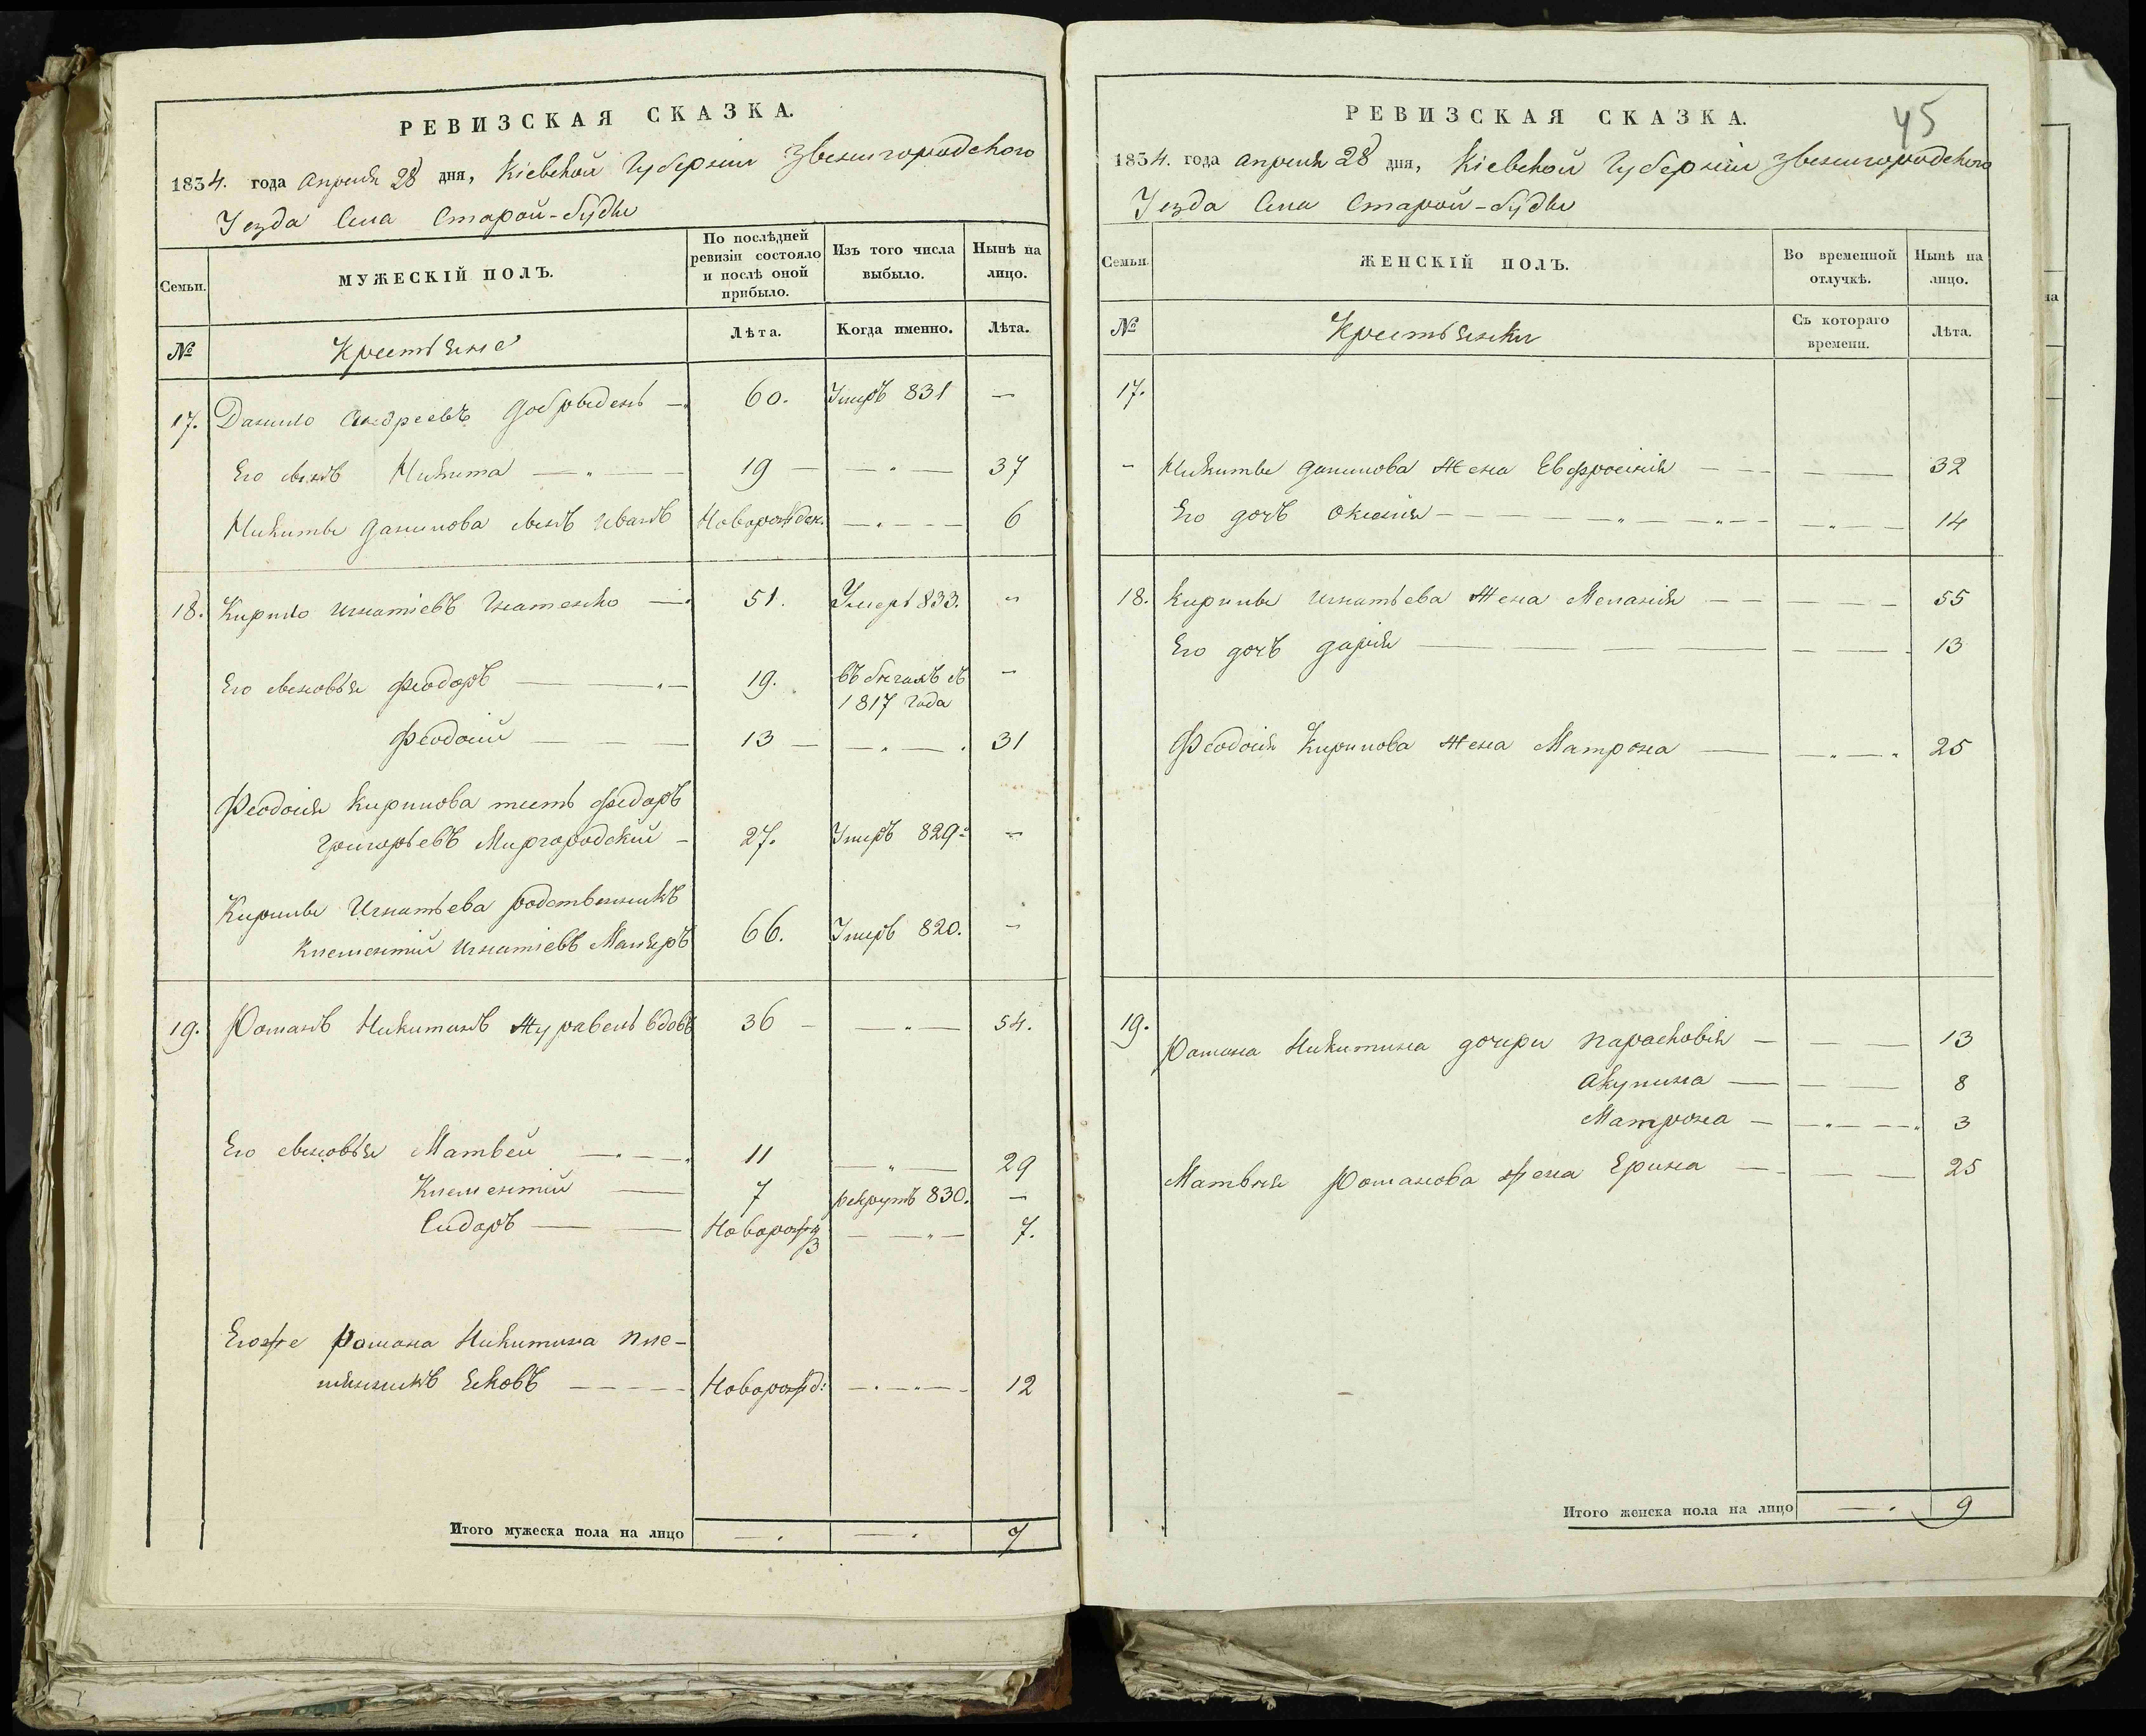 РЕВИЗСКАЯ СКАЗКА.
1834. года Апреля 28 дня, Кіевской Губерніи Звенигородского
Уезда Села Старой-буды
Семьи.
МУЖЕСКІЙ ПОЛЪ.
По послѣдней ревизіи состояло и послѣ оной прибыло.
Изъ того числа выбыло.
Нынѣ на лицо.
№
Крестьяне
Лѣта.
Когда именно.
Лѣта.
17. Данило Андреевъ Добрыдень — 60. Умеръ 831 —
Его сынъ Никита — „ — 19 — — „ — 37
Никиты Данилова сынъ Иванъ Новорожден. — „ — — 6
18. Кирило Игнатіевъ Гнатенко — 51. Умеръ 833. „
Его сыновья Феодоръ — „ — 19. въ бегахъ съ —
1817 года
Феодосій — — — 13 — — „ — . 31
Феодосія Кирилова тесть Федоръ
Григорьевъ Миргородский — 27. Умеръ 829. —
Кирилы Игнатьева родственникъ
Клементий Игнатіевъ Маляръ 66. Умеръ 820. —
19. Романъ Никитинъ Журавель вдовъ 36 — — „ — 54.
Его сыновья Матвей — „ — „ 11 — „ — 29
Клементий — 7 рекрутъ 830. —
Сидоръ — — Новорожд — — „ — 7.
Егоже Романа Никитина пле-
мянникъ Яковъ — — — — Новорожд: — . — „ — - 12
Итого мужеска пола на лицо — . — . 7
45
РЕВИЗСКАЯ СКАЗКА.
1834. года апреля 28 дня, Кіевской Губерніи Звенигородского
Уезда Села Старой-буды
Семьи.
ЖЕНСКІЙ ПОЛЪ.
Во временной отлучкѣ.
Нынѣ на лицо.
№
Крестьянки
Съ котораго времени.
Лѣта.
17.
— Никиты Данилова жена Евфросинія — — — — 32
Его дочь Оксенія — — — — „ — „ — - — „ — 14
18. Кирилы Игнатьева жена Меланія — — — — — 55
Его дочь Дарія — — — — — — . 13
Феодосія Кирилова жена Матрона — — „ — „ 25
19.
Романа Никитина дочери Парасковія — — — 13
Акулина — — — 8
Матрона — — „ — — „ 3
Матвея Романова жена Ерина — - — — 25
Итого женска пола на лицо — . 9